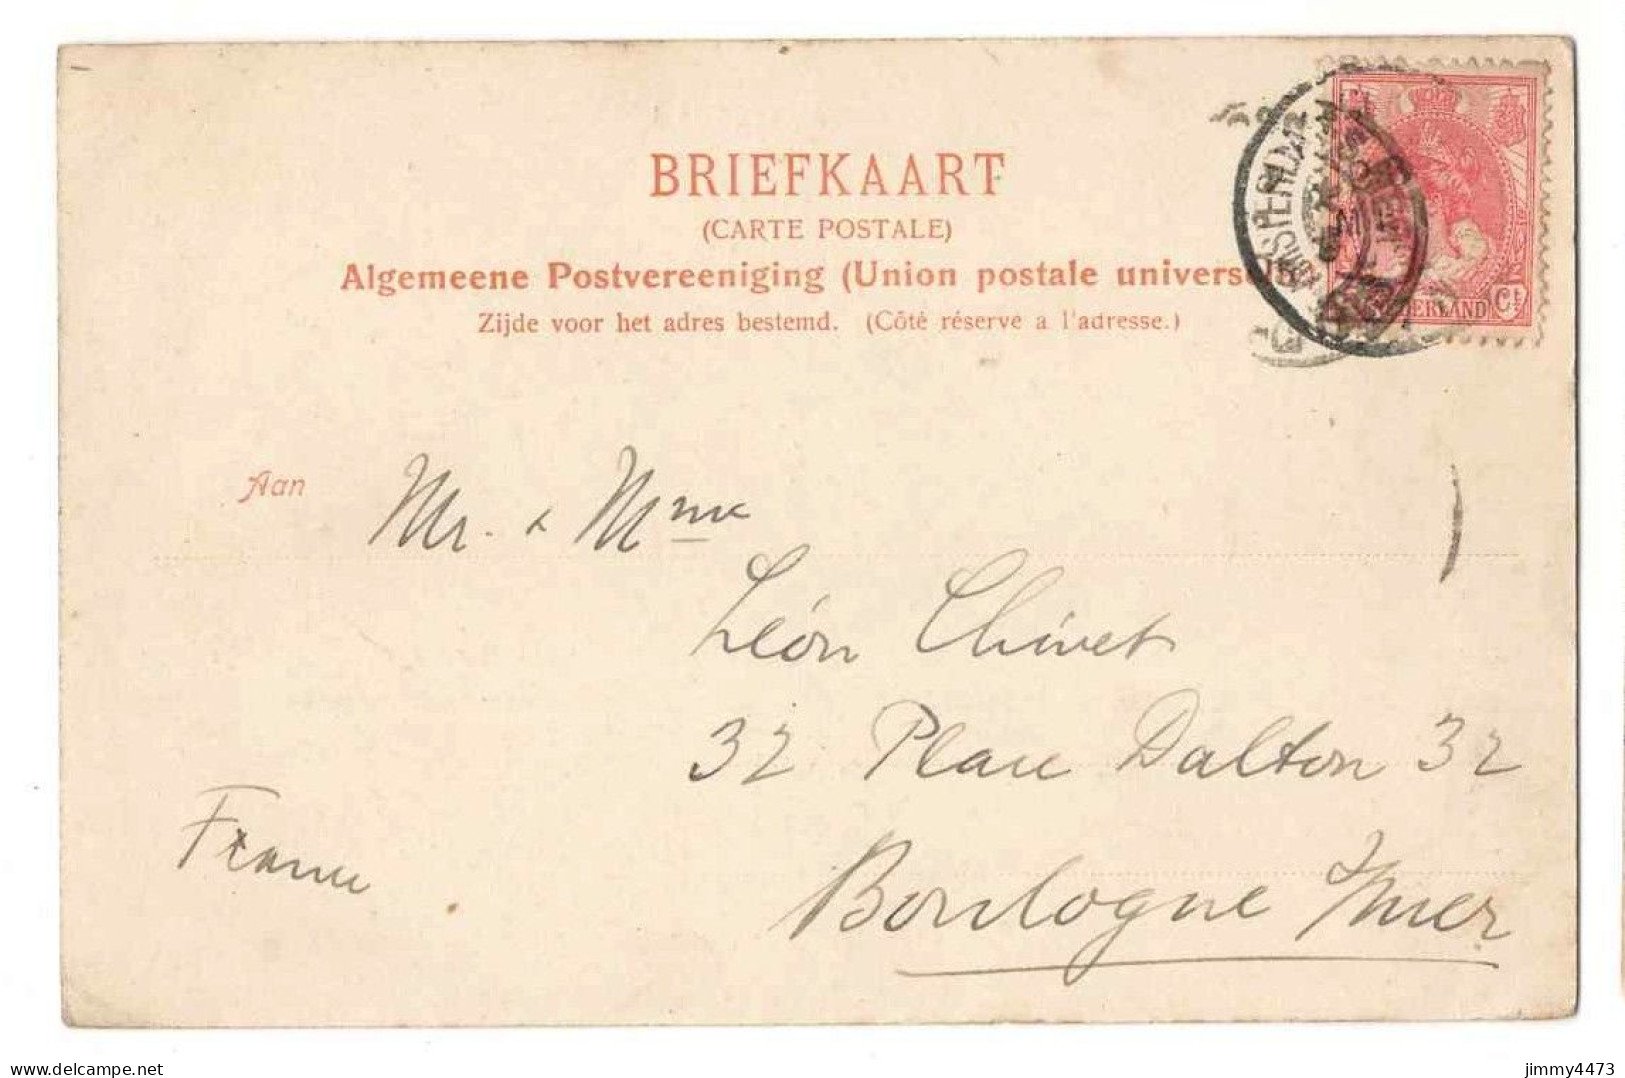 BRIEFKAART
(CARTE POSTALE)
Algemeene Postvereeniging (Union postale universelle
Zijde voor het adres bestemd. (Côté réservé a l'adresse.)
AMSTERDAM
NEDERLAND Ct
Aan
Mr. & Mme
Léon Chivet
32 Place Dalton 32
France
Boulogne s/mer
jimmy4473